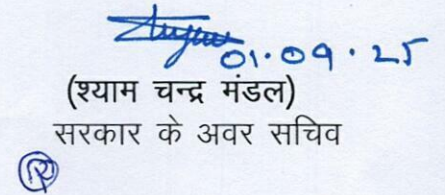 01.09.25
(श्याम चन्द्र मंडल)
सरकार के अवर सचिव